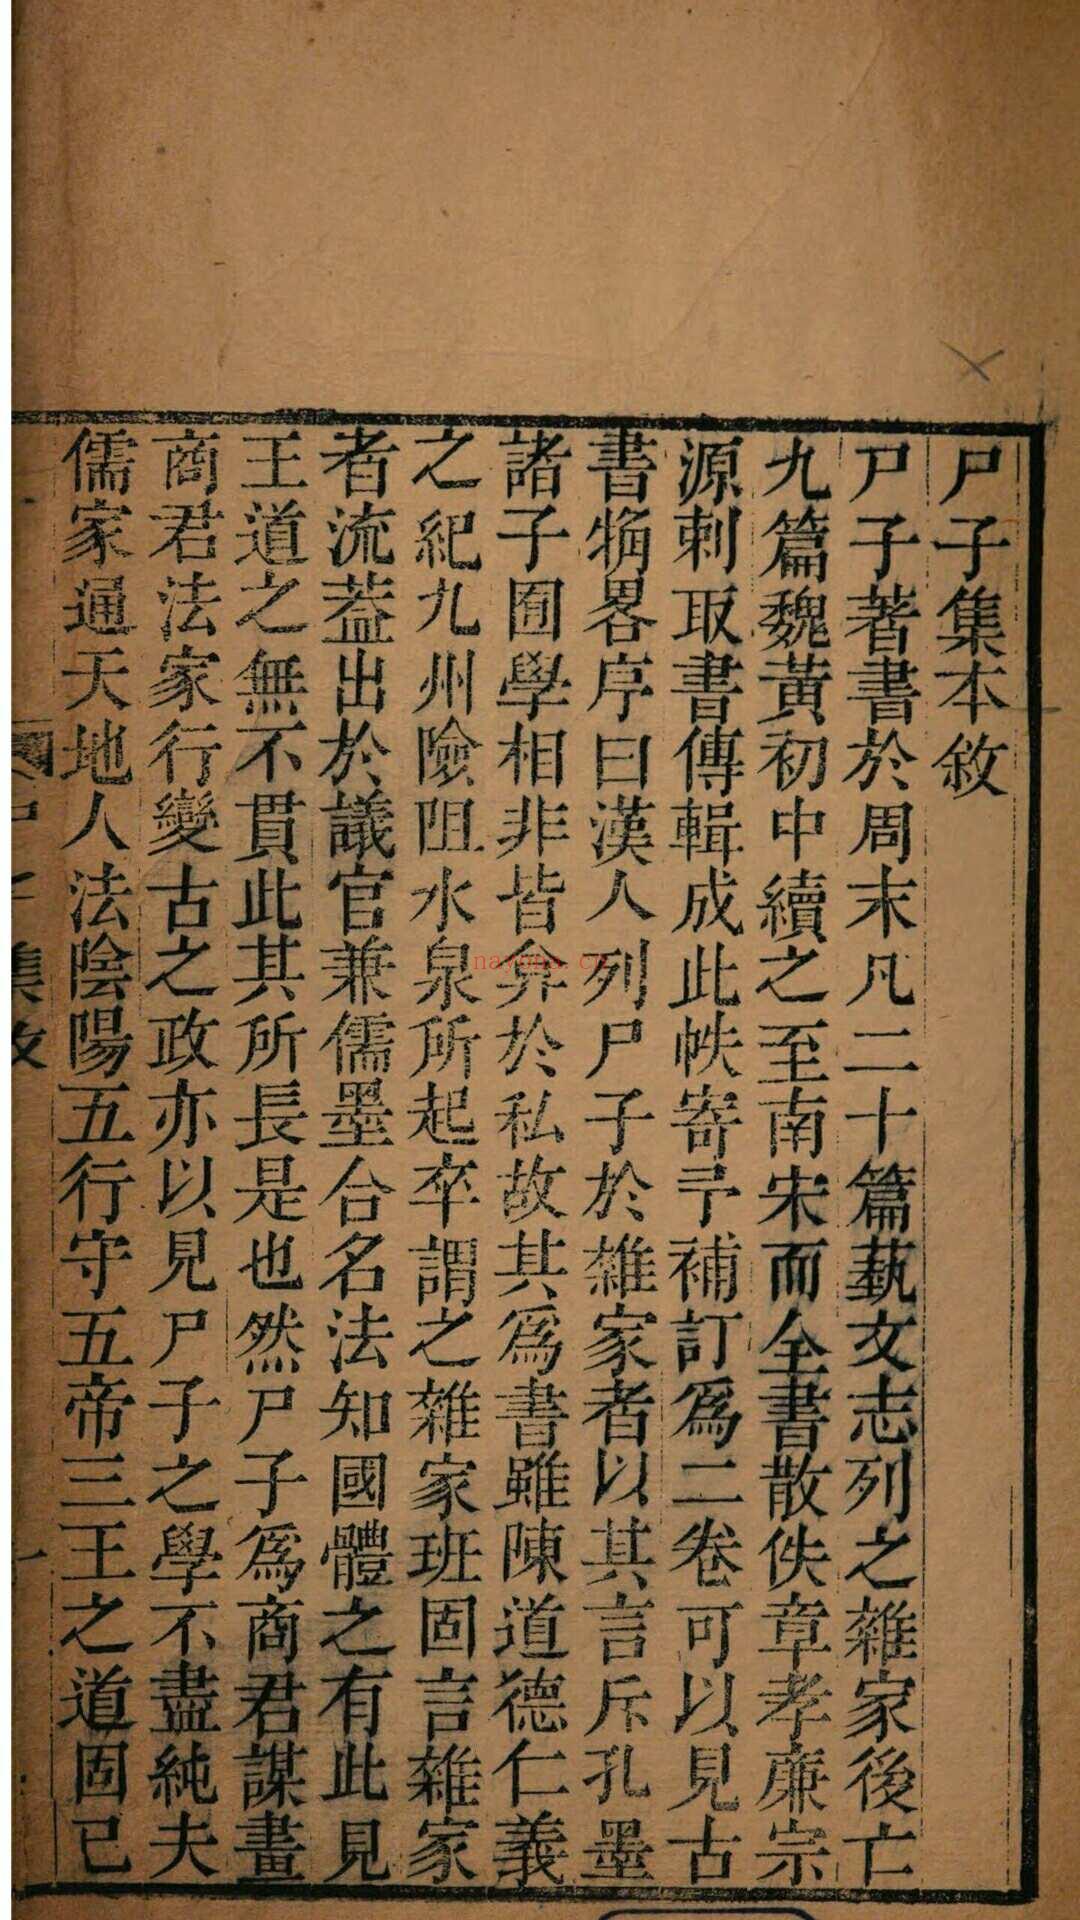 尸子集本敘
尸子著書於周末凡二十篇藝文志列之雜家後亡
九篇魏黃初中續之至南宋而全書散佚章孝廉宗
源刺取書傳輯成此帙寄予補訂爲二卷可以見古
書犓畧序曰漢人列尸子於雜家者以其言斥孔墨
諸子囿學相非皆弇於私故其爲書雖陳道德仁義
之紀九州險阻水泉所起卒謂之雜家班固言雜家
者流葢出於議官兼儒墨合名法知國體之有此見
王道之無不貫此其所長是也然尸子爲商君謀畫
商君法家行變古之政亦以見尸子之學不盡純夫
儒家通天地人法陰陽五行守五帝三王之道固已
集敘
一
nayona.cn